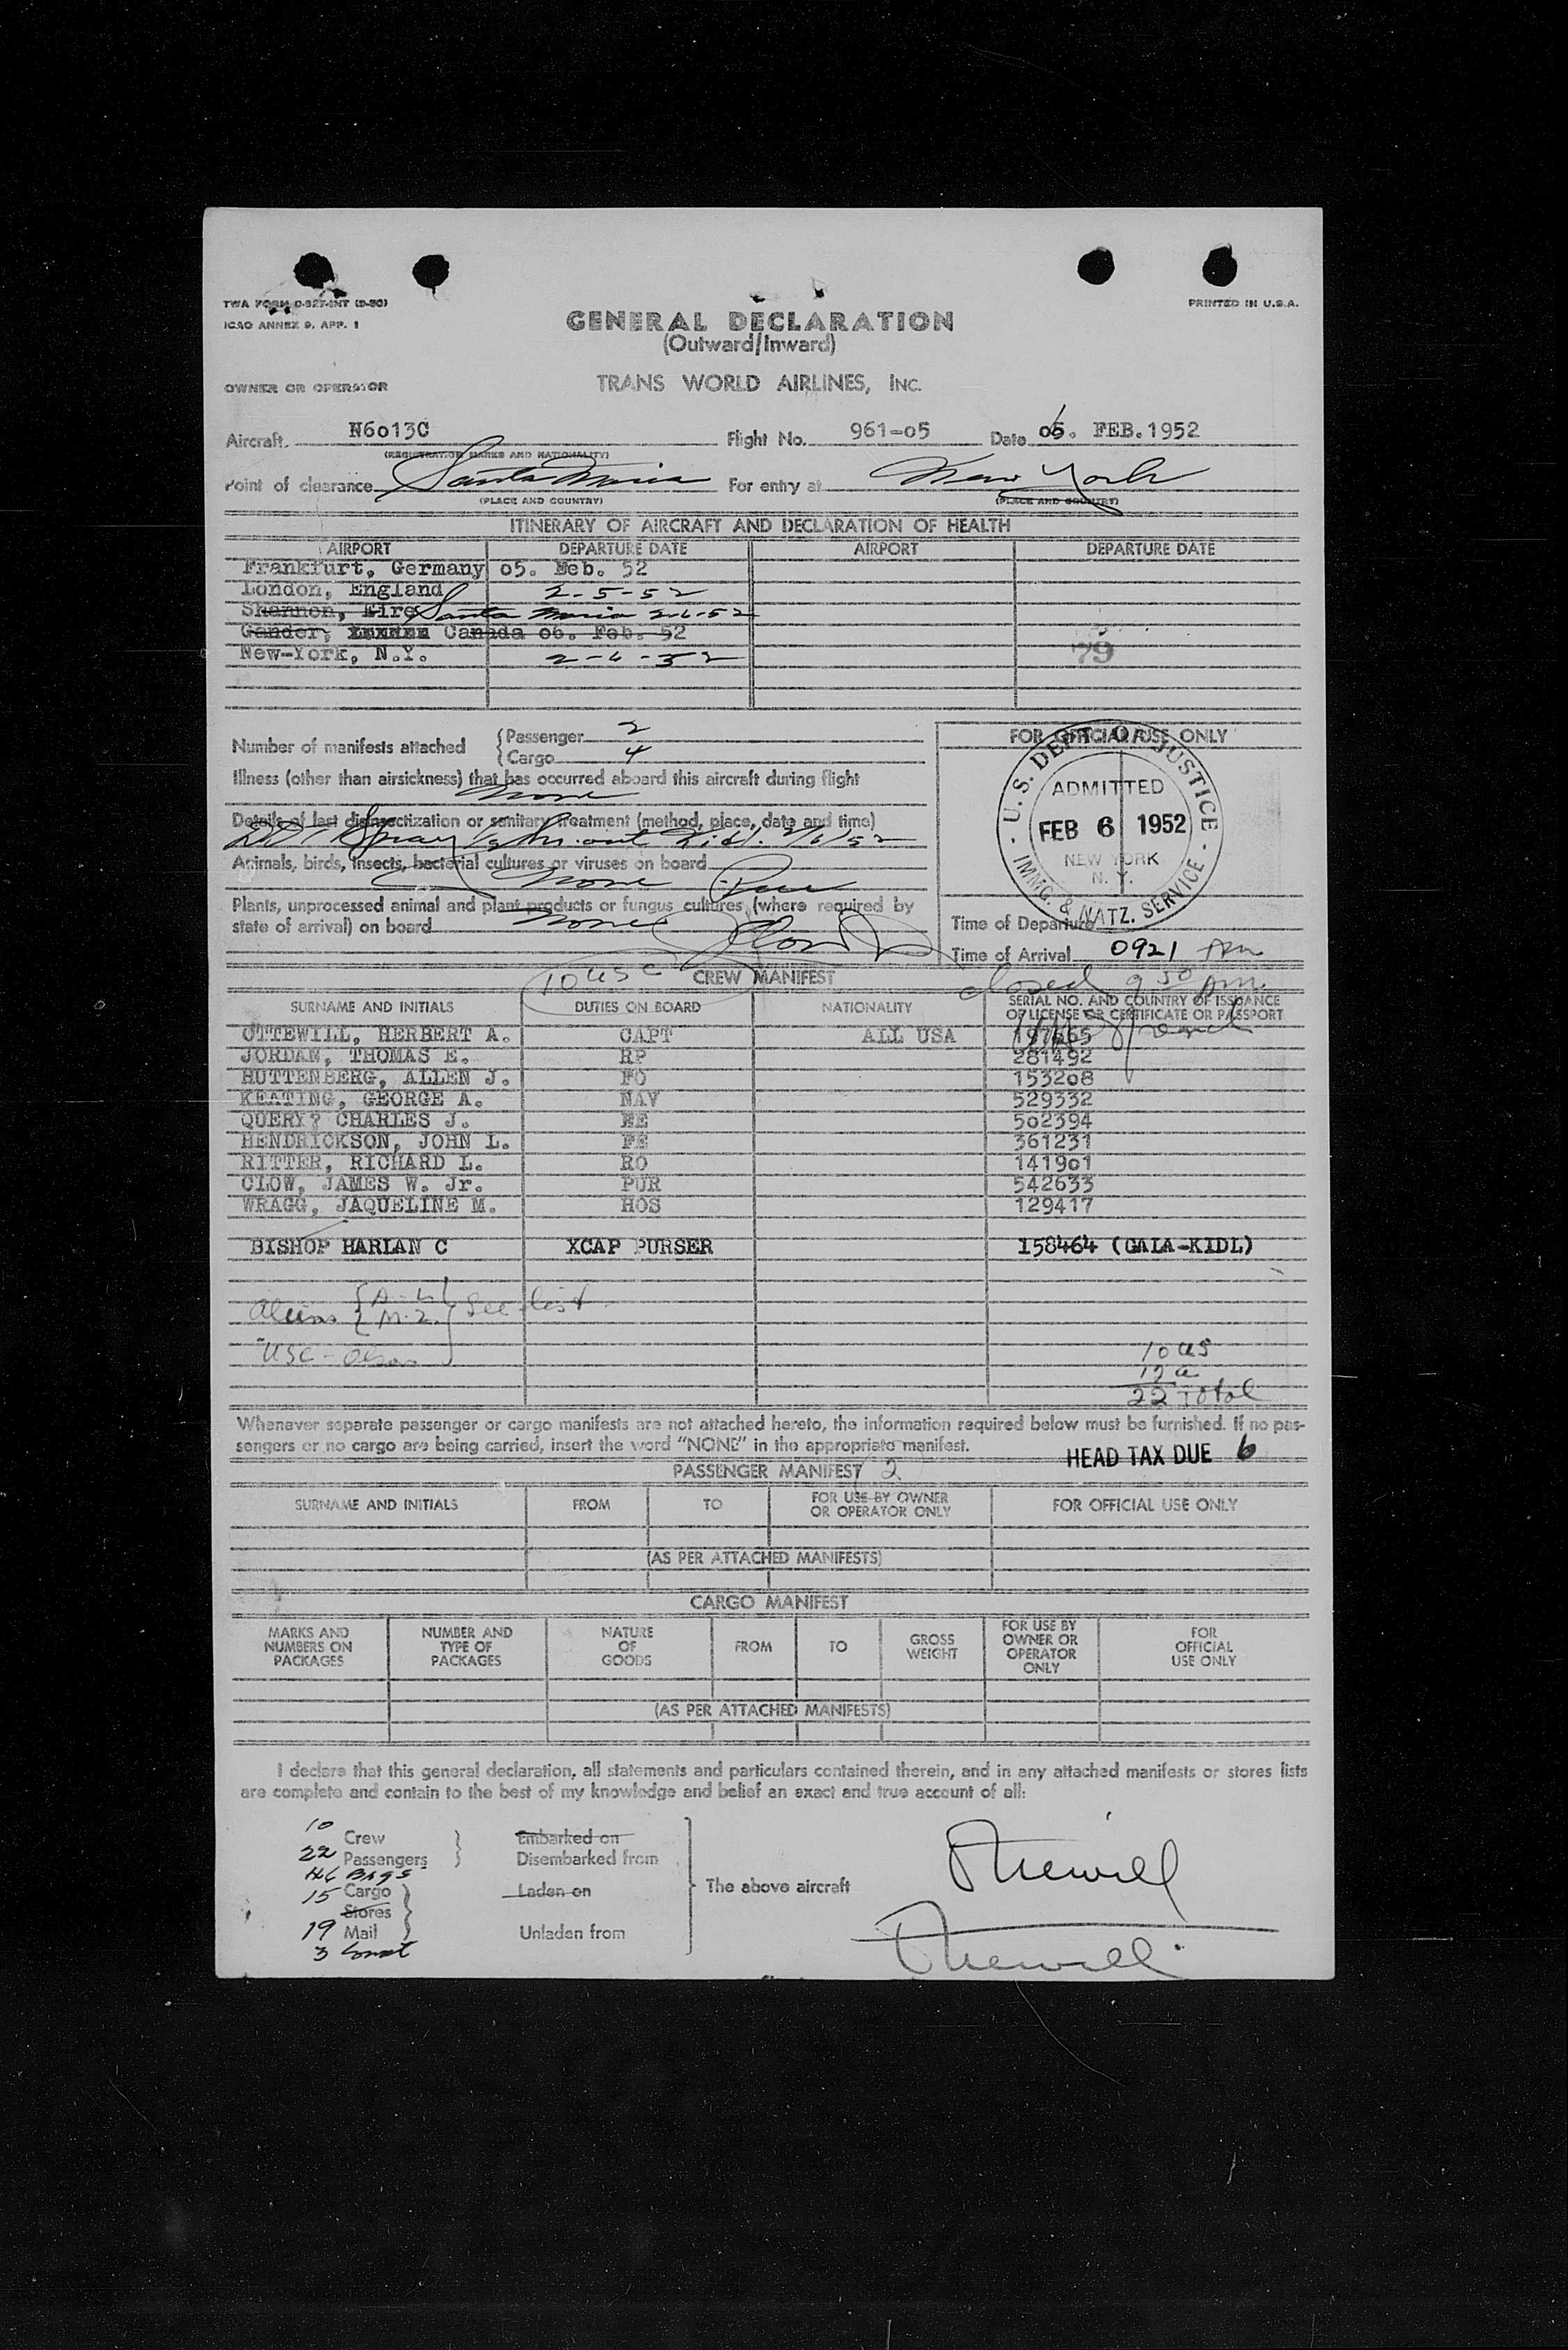 TWA FORM O-527-INT (9-50)
PRINTED IN U.S.A.
ICAO ANNEX 9, APP. 1
GENERAL DECLARATION
(Outward/Inward)
OWNER OR OPERATOR TRANS WORLD AIRLINES, INC.
Aircraft N6013C Flight No. 961-05 Date 06. FEB. 1952
(REGISTRATION MARKS AND NATIONALITY)
Point of clearance Santa Maria For entry at New York
(PLACE AND COUNTRY) (PLACE AND COUNTRY)
ITINERARY OF AIRCRAFT AND DECLARATION OF HEALTH
AIRPORT DEPARTURE DATE AIRPORT DEPARTURE DATE
Frankfurt, Germany 05. Feb. 52
London, England 2-5-52
Shannon, Eire Santa Maria 2-6-52
Gander, Canada 06. Feb. 52
New-York, N.Y. 2-6-52
79
Number of manifests attached
Passenger 2
Cargo 4
FOR OFFICIAL USE ONLY
Illness (other than airsickness) that has occurred aboard this aircraft during flight
None
Details of last disinsectization or sanitary treatment (method, place, date and time)
DDT Spray 1/2 hr. out Kidl. 2/6/52
Animals, birds, insects, bacterial cultures or viruses on board
None
Plants, unprocessed animal and plant products or fungus cultures (where required by
state of arrival) on board None
U.S. DEPT. OF JUSTICE
ADMITTED
FEB 6 1952
NEW YORK
N. Y.
IMMG. & NATZ. SERVICE
Time of Departure
Time of Arrival 0921 AM
closed 9 50 AM
10 USC
CREW MANIFEST
SURNAME AND INITIALS DUTIES ON BOARD NATIONALITY SERIAL NO. AND COUNTRY OF ISSUANCE
OF LICENSE OR CERTIFICATE OR PASSPORT
OTTEWILL, HERBERT A. CAPT ALL USA
JORDAN, THOMAS E. RP 281492
HUTTENBERG, ALLEN J. FO 153208
KEATING, GEORGE A. NAV 529332
QUERY? CHARLES J. 502394
HENDRICKSON, JOHN L. FE 361231
RITTER, RICHARD L. RO 141901
CLOW, JAMES W. Jr. PUR 542633
WRAGG, JAQUELINE M. HOS 129417
BISHOP HARLAN C XCAP PURSER 158464 (GALA-KIDL)
Aliens A-L M-Z See list
USC -
10 US
12 a
22 Total
Whenever separate passenger or cargo manifests are not attached hereto, the information required below must be furnished. If no pas-
sengers or no cargo are being carried, insert the word "NONE" in the appropriate manifest.
HEAD TAX DUE 6
PASSENGER MANIFEST 2
SURNAME AND INITIALS FROM TO FOR USE BY OWNER
OR OPERATOR ONLY FOR OFFICIAL USE ONLY
(AS PER ATTACHED MANIFESTS)
CARGO MANIFEST
MARKS AND
NUMBERS ON
PACKAGES
NUMBER AND
TYPE OF
PACKAGES
NATURE
OF
GOODS
FROM
TO
GROSS
WEIGHT
FOR USE BY
OWNER OR
OPERATOR
ONLY
FOR
OFFICIAL
USE ONLY
(AS PER ATTACHED MANIFESTS)
I declare that this general declaration, all statements and particulars contained therein, and in any attached manifests or stores lists
are complete and contain to the best of my knowledge and belief an exact and true account of all:
10 Crew Embarked on
22 Passengers Disembarked from
Bags
15 Cargo Laden on
Stores
19 Mail Unladen from
3
The above aircraft
Ottewill
Ottewill